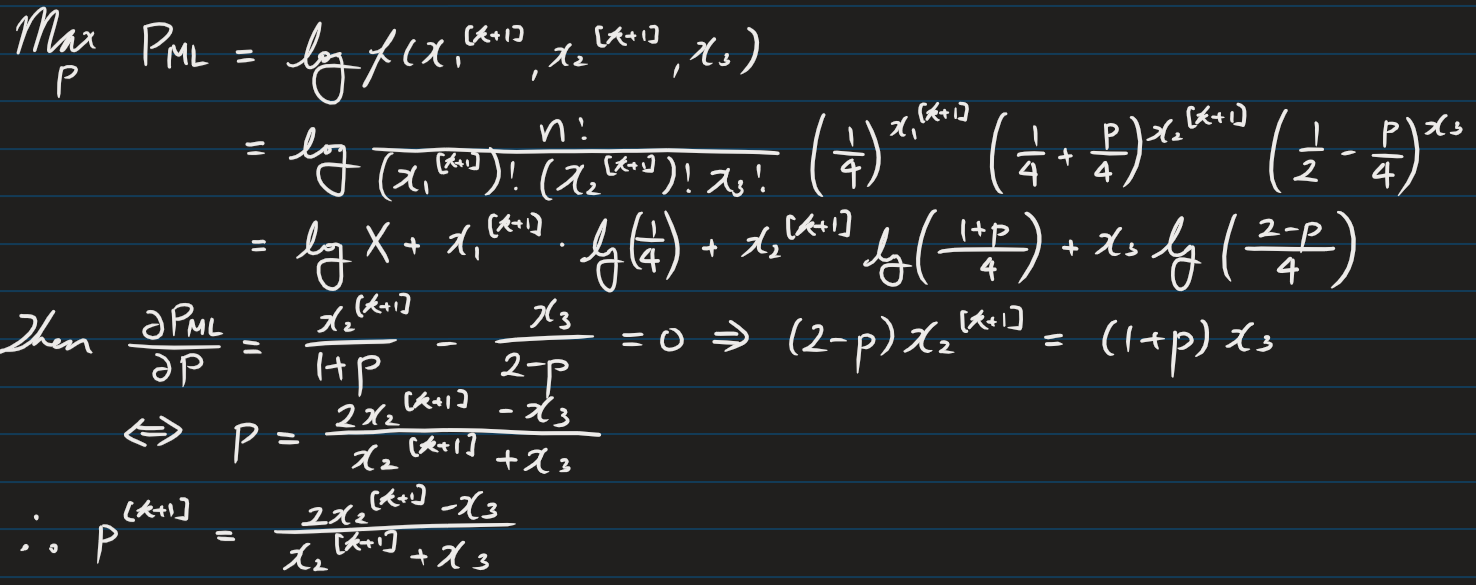 Max_P P_ML = log f(x₁^[k+1], x₂^[k+1], x₃)
= log n! / ((x₁^[k+1])! (x₂^[k+1])! x₃!) (1/4)^x₁^[k+1] (1/4 + P/4)^x₂^[k+1] (1/2 - P/4)^x₃
= log X + x₁^[k+1] · lg(1/4) + x₂^[k+1] lg((1+P)/4) + x₃ lg((2-P)/4)
Then ∂P_ML/∂P = x₂^[k+1]/(1+P) - x₃/(2-P) = 0 ⇒ (2-P) x₂^[k+1] = (1+P) x₃
⇔ P = (2x₂^[k+1] - x₃)/(x₂^[k+1] + x₃)
∴ P^[k+1] = (2x₂^[k+1] - x₃)/(x₂^[k+1] + x₃)